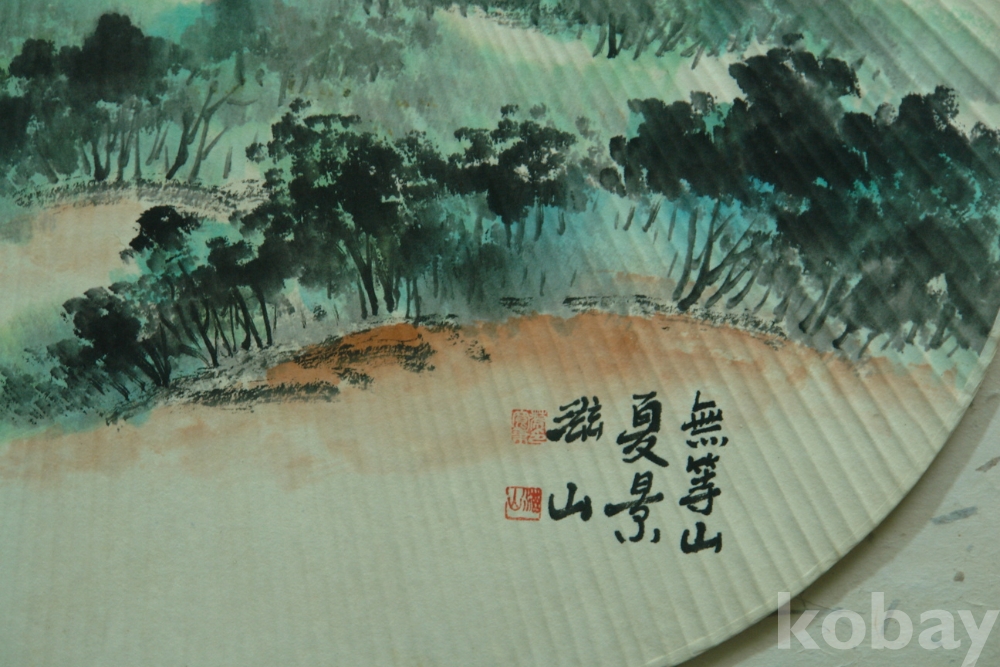 無等山
夏景
山
kobay